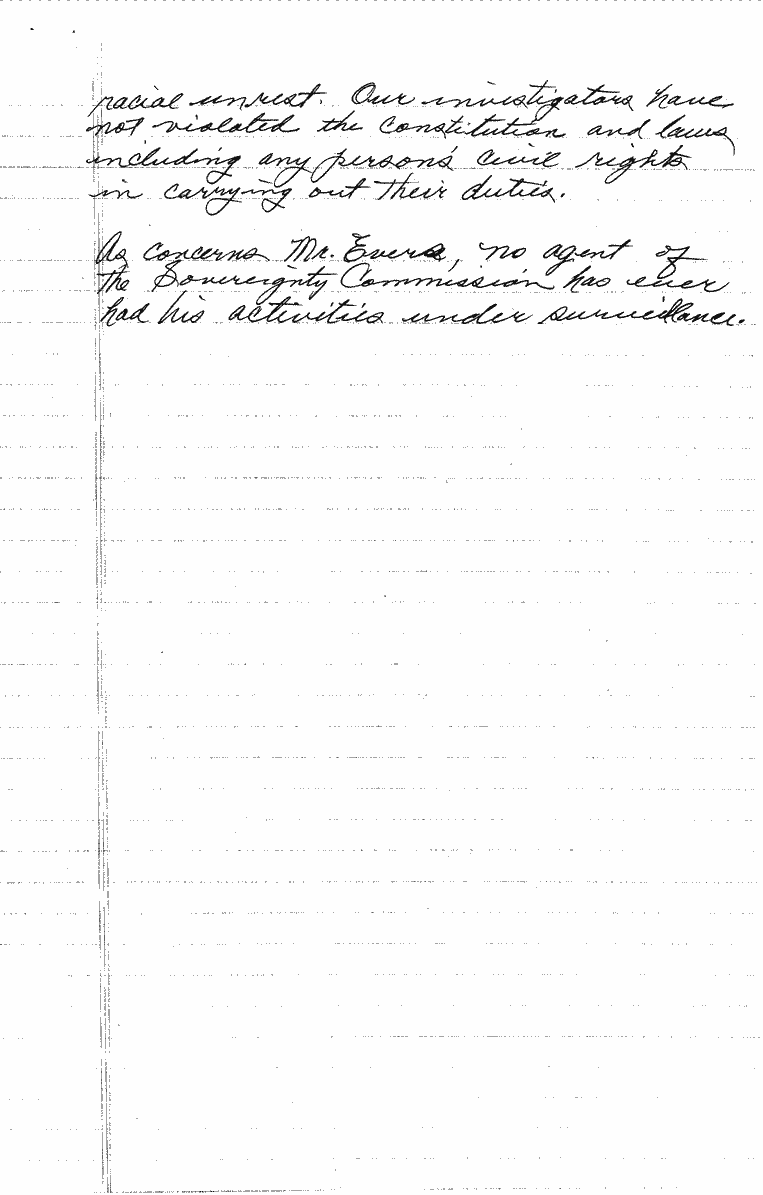 racial unrest. Our investigators have
not violated the constitution and laws
including any person's civil rights
in carrying out their duties.
As concerns Mr. Evers, no agent of
the Sovereignty Commission has ever
had his activities under surveillance.